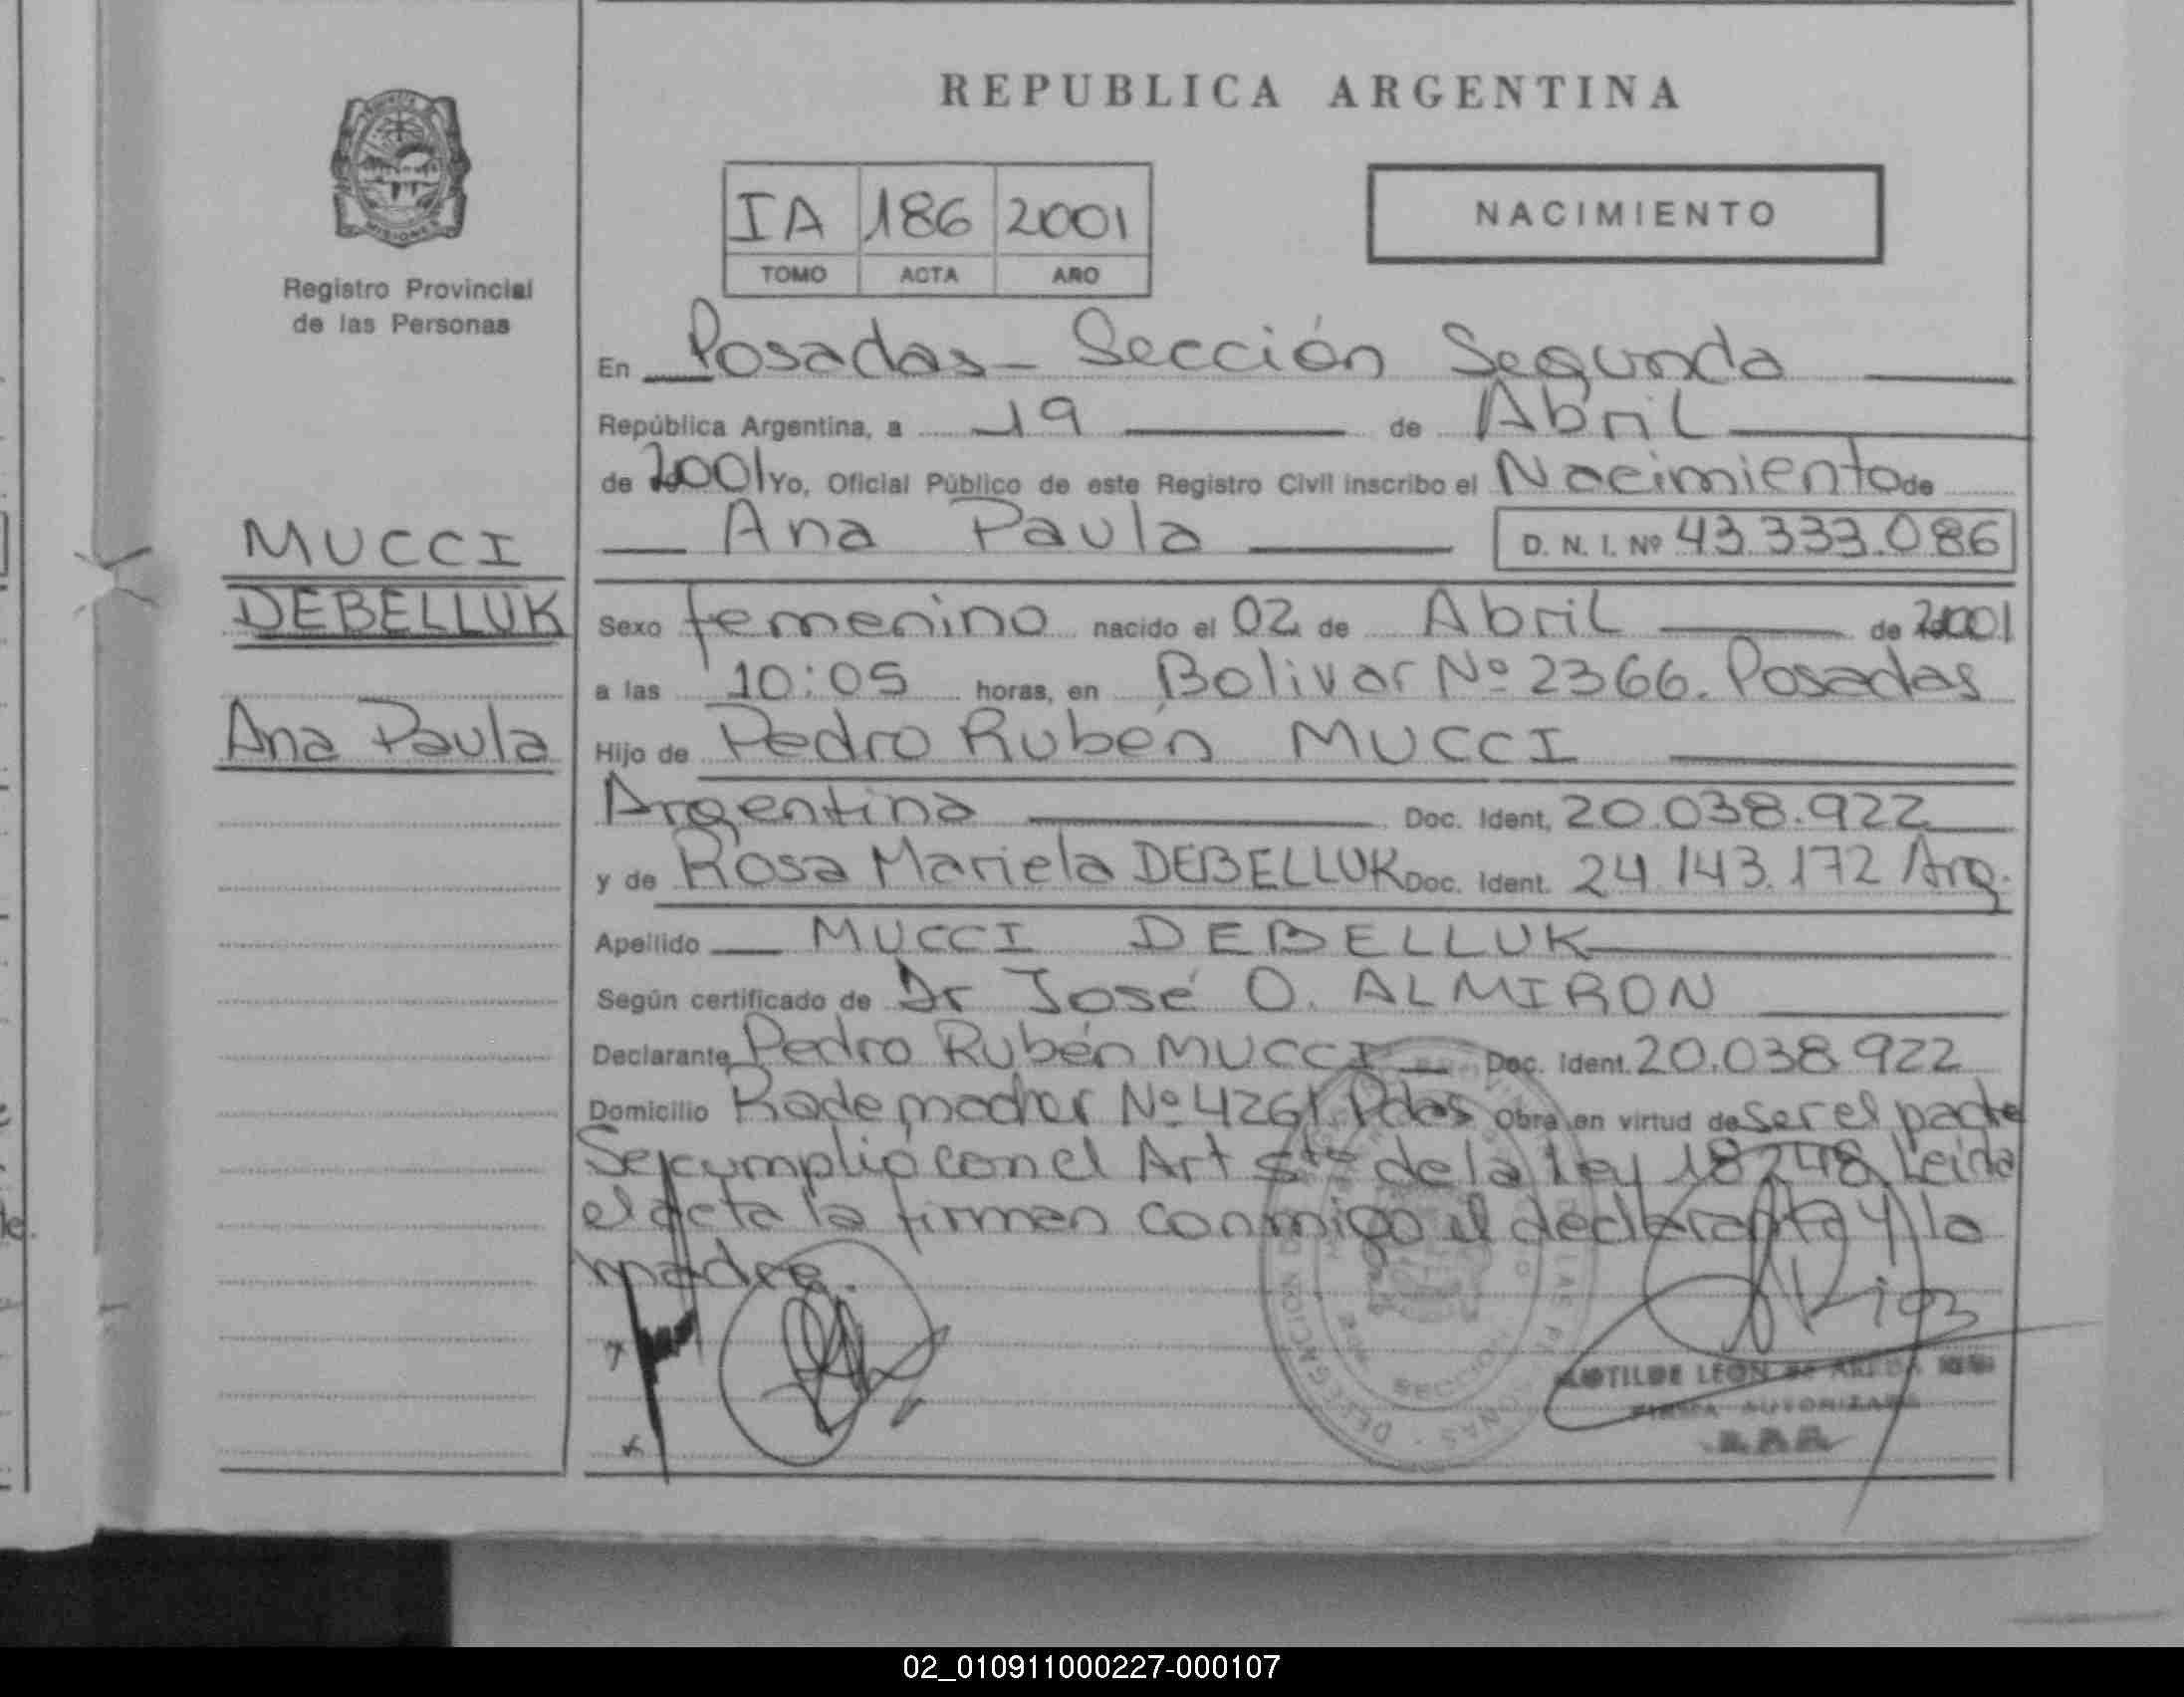 REPUBLICA ARGENTINA
MISIONES
Registro Provincial
de las Personas
IA 186 2001
TOMO ACTA AÑO
NACIMIENTO
En Posadas - Sección Segunda
República Argentina, a 19 de Abril
de 2001 Yo, Oficial Público de este Registro Civil inscribo el Nacimiento de
Ana Paula D. N. I. Nº 43.333.086
MUCCI
DEBELLUK
Ana Paula
Sexo femenino nacido el 02 de Abril de 2001
a las 10:05 horas, en Bolivar Nº 2366. Posadas
Hijo de Pedro Rubén MUCCI
Argentina Doc. Ident. 20.038.922
y de Rosa Mariela DEBELLUK Doc. Ident. 24.143.172 Arg.
Apellido MUCCI DEBELLUK
Según certificado de Dr José O. ALMIRON
Declarante Pedro Rubén MUCCI Doc. Ident. 20.038.922
Domicilio Rademacher Nº 4261 Pdas Obra en virtud de ser el padre
Se cumplió con el Art 5to de la Ley 18248 Leida
el acta la firman conmigo el declarante y la
madre.
LEON de
FIRMA AUTORIZADA
02_010911000227-000107